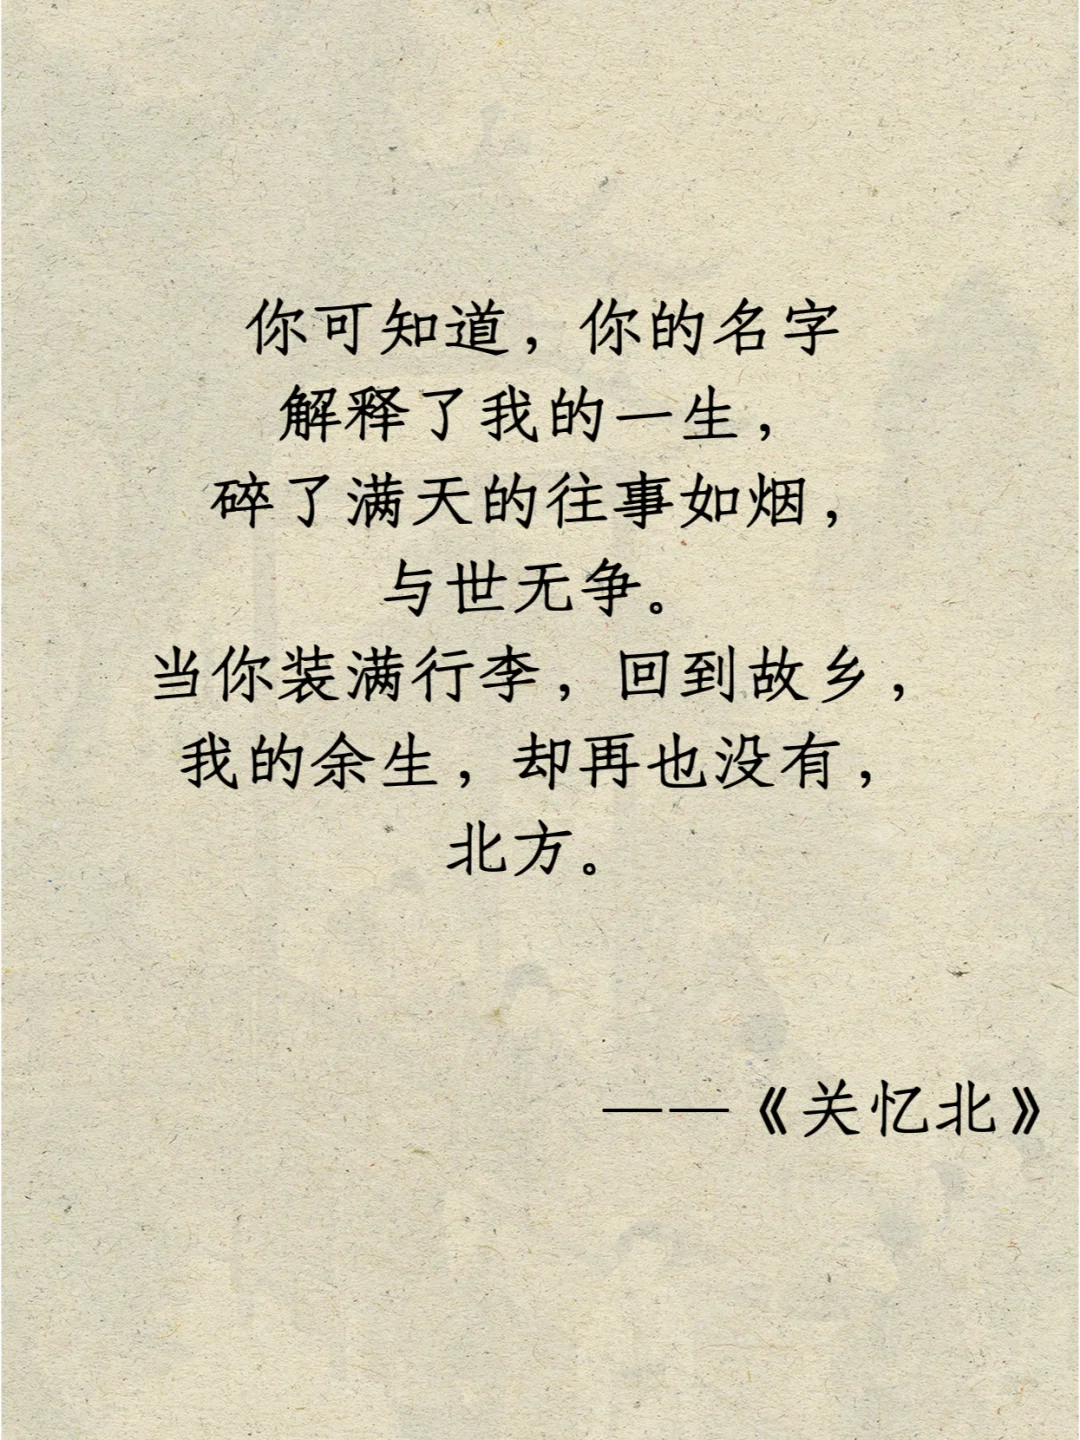 你可知道，你的名字
解释了我的一生，
碎了满天的往事如烟，
与世无争。
当你装满行李，回到故乡，
我的余生，却再也没有，
北方。
——《关忆北》